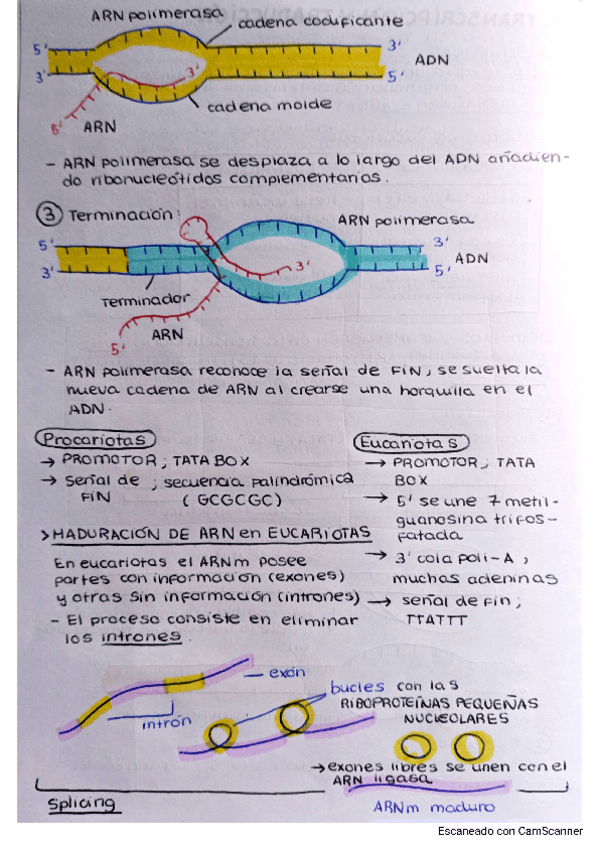 ARN polimerasa
cadena codificante
5'
3'
ADN
3'
3'
5'
cadena molde
5'
ARN
- ARN polimerasa se desplaza a lo largo del ADN añadien-
do ribonucleótidos complementarios.
③ Terminación:
ARN polimerasa
5'
3'
ADN
3'
3'
5'
Terminador
ARN
5'
- ARN polimerasa reconoce la señal de FIN, se suelta la
nueva cadena de ARN al crearse una horquilla en el
ADN.
Procariotas
→ PROMOTOR; TATA BOX
→ señal de ; secuencia palindrómica
FIN ( GCGCGC )
Eucariotas
→ PROMOTOR; TATA
BOX
→ 5' se une 7 metil-
guanosina trifos-
fatada
→ 3' cola poli-A,
muchas adeninas
→ señal de fin;
TTATTT
> MADURACIÓN DE ARN en EUCARIOTAS
En eucariotas el ARNm posee
partes con información (exones)
y otras sin información (intrones)
- El proceso consiste en eliminar
los intrones.
exón
intrón
bucles con las
RIBOPROTEÍNAS PEQUEÑAS
NUCLEOLARES
→ exones libres se unen con el
ARN ligasa
Splicing
ARNm maduro
Escaneado con CamScanner